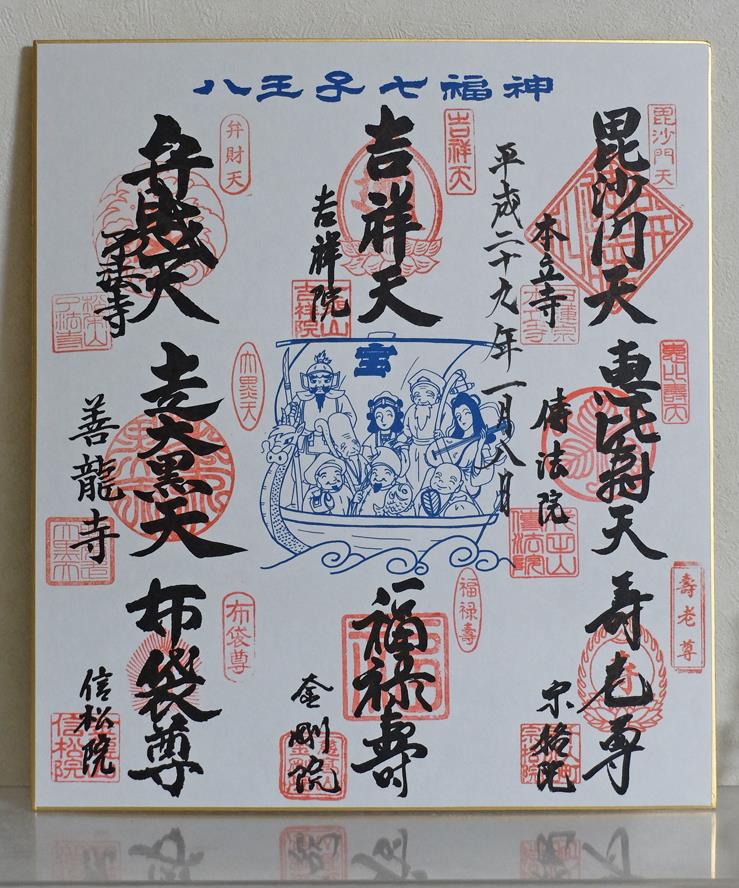 八王子七福神
毘沙門天
毘沙門天
本立寺
恵比寿天
恵比壽天
傳法院
傳法院
壽老尊
寿老尊
宗格院
宗格院
平成二十九年一月八日
吉祥天
吉祥天
吉祥院
吉祥院
宝
福禄壽
福禄壽
金剛院
弁財天
弁財天
了法寺
了法寺
大黒天
走大黒天
善龍寺
布袋尊
布袋尊
信松院
信松院